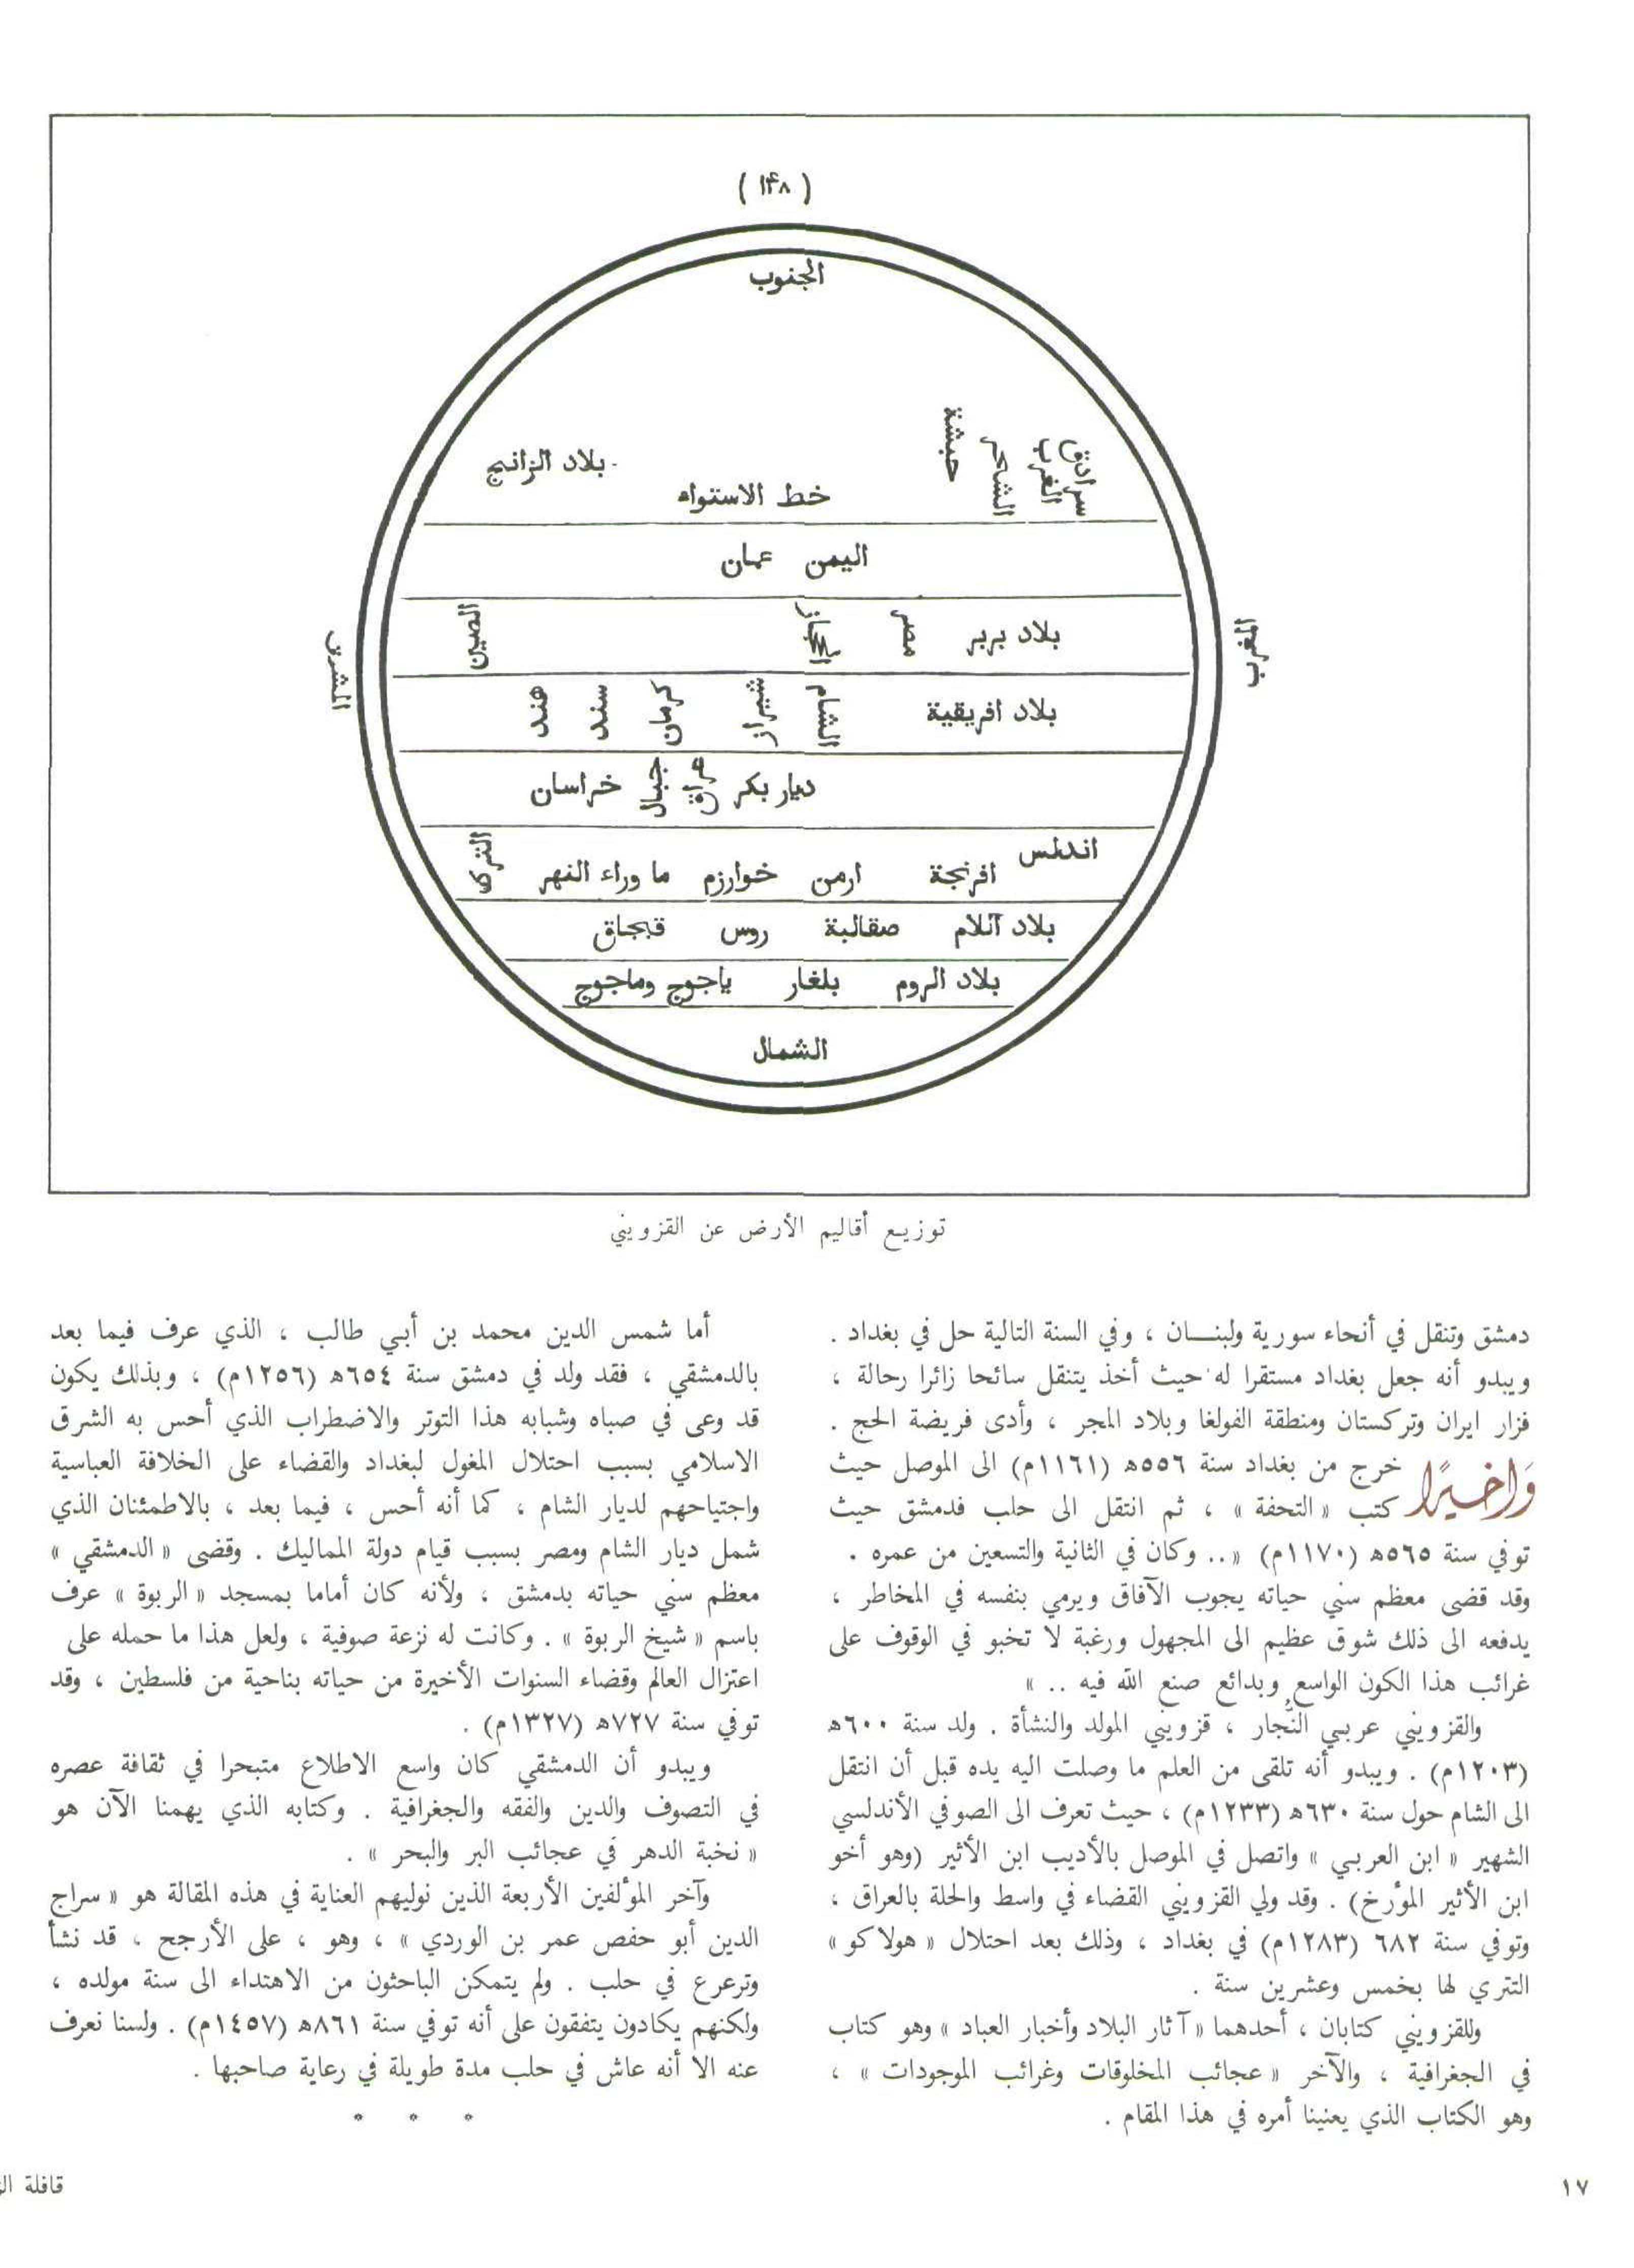 ( ۱۴۸ )
الجنوب
سرادق الغرب
الشحر
حبشة
بلاد الزانج
خط الاستواء
اليمن عمان
المغرب
المشرق
بلاد بربر مصر الحجاز الصين
بلاد افريقية الشام شيراز كرمان سند هند
ديار بكر عراق جبال خراسان
اندلس افرنجة ارمن خوارزم ما وراء النهر الترك
بلاد آللام صقالبة روس قبجاق
بلاد الروم بلغار ياجوج وماجوج
الشمال
توزيع أقاليم الأرض عن القزويني
دمشق وتنقل في أنحاء سورية ولبنـــان ، وفي السنة التالية حل في بغداد .
ويبدو أنه جعل بغداد مستقرا له حيث أخذ يتنقل سائحا زائرا رحالة ،
فزار ايران وتركستان ومنطقة الفولغا وبلاد المجر ، وأدى فريضة الحج .
وَاخيرًا خرج من بغداد سنة ٥٥٦ه (١١٦١م) الى الموصل حيث
كتب « التحفة » ، ثم انتقل الى حلب فدمشق حيث
توفي سنة ٥٦٥ه (١١٧٠م) «.. وكان في الثانية والتسعين من عمره .
وقد قضى معظم سني حياته يجوب الآفاق ويرمي بنفسه في المخاطر ،
يدفعه الى ذلك شوق عظيم الى المجهول ورغبة لا تخبو في الوقوف على
غرائب هذا الكون الواسع وبدائع صنع الله فيه .. »
والقزويني عربي النُّجار ، قزويني المولد والنشأة . ولد سنة ٦٠٠ه
(١٢٠٣م) . ويبدو أنه تلقى من العلم ما وصلت اليه يده قبل أن انتقل
الى الشام حول سنة ٦٣٠ه (١٢٣٣م) ، حيث تعرف الى الصوفي الأندلسي
الشهير « ابن العربي » واتصل في الموصل بالأديب ابن الأثير (وهو أخو
ابن الأثير المؤرخ) . وقد ولي القزويني القضاء في واسط والحلة بالعراق ،
وتوفي سنة ٦٨٢ (١٢٨٣م) في بغداد ، وذلك بعد احتلال « هولاكو »
التتري لها بخمس وعشرين سنة .
وللقزويني كتابان ، أحدهما « آثار البلاد وأخبار العباد » وهو كتاب
في الجغرافية ، والآخر « عجائب المخلوقات وغرائب الموجودات » ،
وهو الكتاب الذي يعنينا أمره في هذا المقام .
أما شمس الدين محمد بن أبي طالب ، الذي عرف فيما بعد
بالدمشقي ، فقد ولد في دمشق سنة ٦٥٤ه (١٢٥٦م) ، وبذلك يكون
قد وعى في صباه وشبابه هذا التوتر والاضطراب الذي أحس به الشرق
الاسلامي بسبب احتلال المغول لبغداد والقضاء على الخلافة العباسية
واجتياحهم لديار الشام ، كما أنه أحس ، فيما بعد ، بالاطمئنان الذي
شمل ديار الشام ومصر بسبب قيام دولة المماليك . وقضى « الدمشقي »
معظم سني حياته بدمشق ، ولأنه كان أماما بمسجد « الربوة » عرف
باسم « شيخ الربوة » . وكانت له نزعة صوفية ، ولعل هذا ما حمله على
اعتزال العالم وقضاء السنوات الأخيرة من حياته بناحية من فلسطين ، وقد
توفي سنة ٧٢٧ه (١٣٢٧م) .
ويبدو أن الدمشقي كان واسع الاطلاع متبحرا في ثقافة عصره
في التصوف والدين والفقه والجغرافية . وكتابه الذي يهمنا الآن هو
« نخبة الدهر في عجائب البر والبحر » .
وآخر المؤلفين الأربعة الذين نوليهم العناية في هذه المقالة هو « سراج
الدين أبو حفص عمر بن الوردي » ، وهو ، على الأرجح ، قد نشأ
وترعرع في حلب . ولم يتمكن الباحثون من الاهتداء الى سنة مولده ،
ولكنهم يكادون يتفقون على أنه توفي سنة ٨٦١ه (١٤٥٧م) . ولسنا نعرف
عنه الا أنه عاش في حلب مدة طويلة في رعاية صاحبها .
* * *
١٧
قافلة